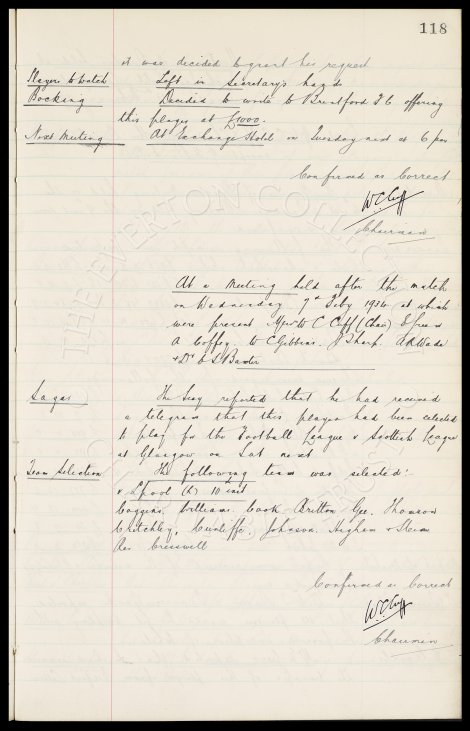 118
it was decided to grant his request
Players to watch Left in Secretary's hands
Bocking Decided to write to Brentford F C offering
this player at £1000.
Next Meeting At Exchange Hotel on Tuesday next at 6 pm
Confirmed as Correct
W C Cuff
Chairman
THE EVERTON COLLECTION
At a Meeting held after the match
on Wednesday 7th Feby 1934 at which
were present Messrs W C Cuff (Chair) E Green
A Coffey. W C Gibbins. J Sharp. A R Wade
+ Dr C S Baxter
Sagar The Secy reported that he had received
a telegram that this player had been selected
to play for the Football League v Scottish League
at Glasgow on Sat next
Team Selection The following team was selected:-
v L'pool (A) 10 inst
Coggins. Williams. Cook. Britton Gee. Thomson
Critchley, Cunliffe. Johnson. Higham + Stein
Res Cresswell
Confirmed as Correct
W C Cuff
Chairman